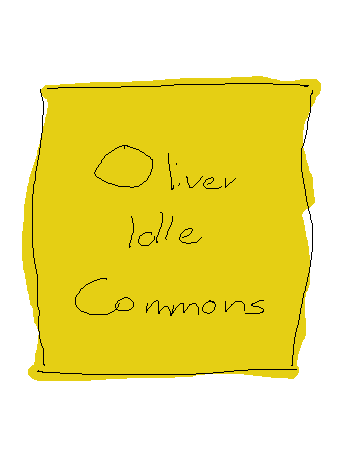 Oliver
Idle
Commons